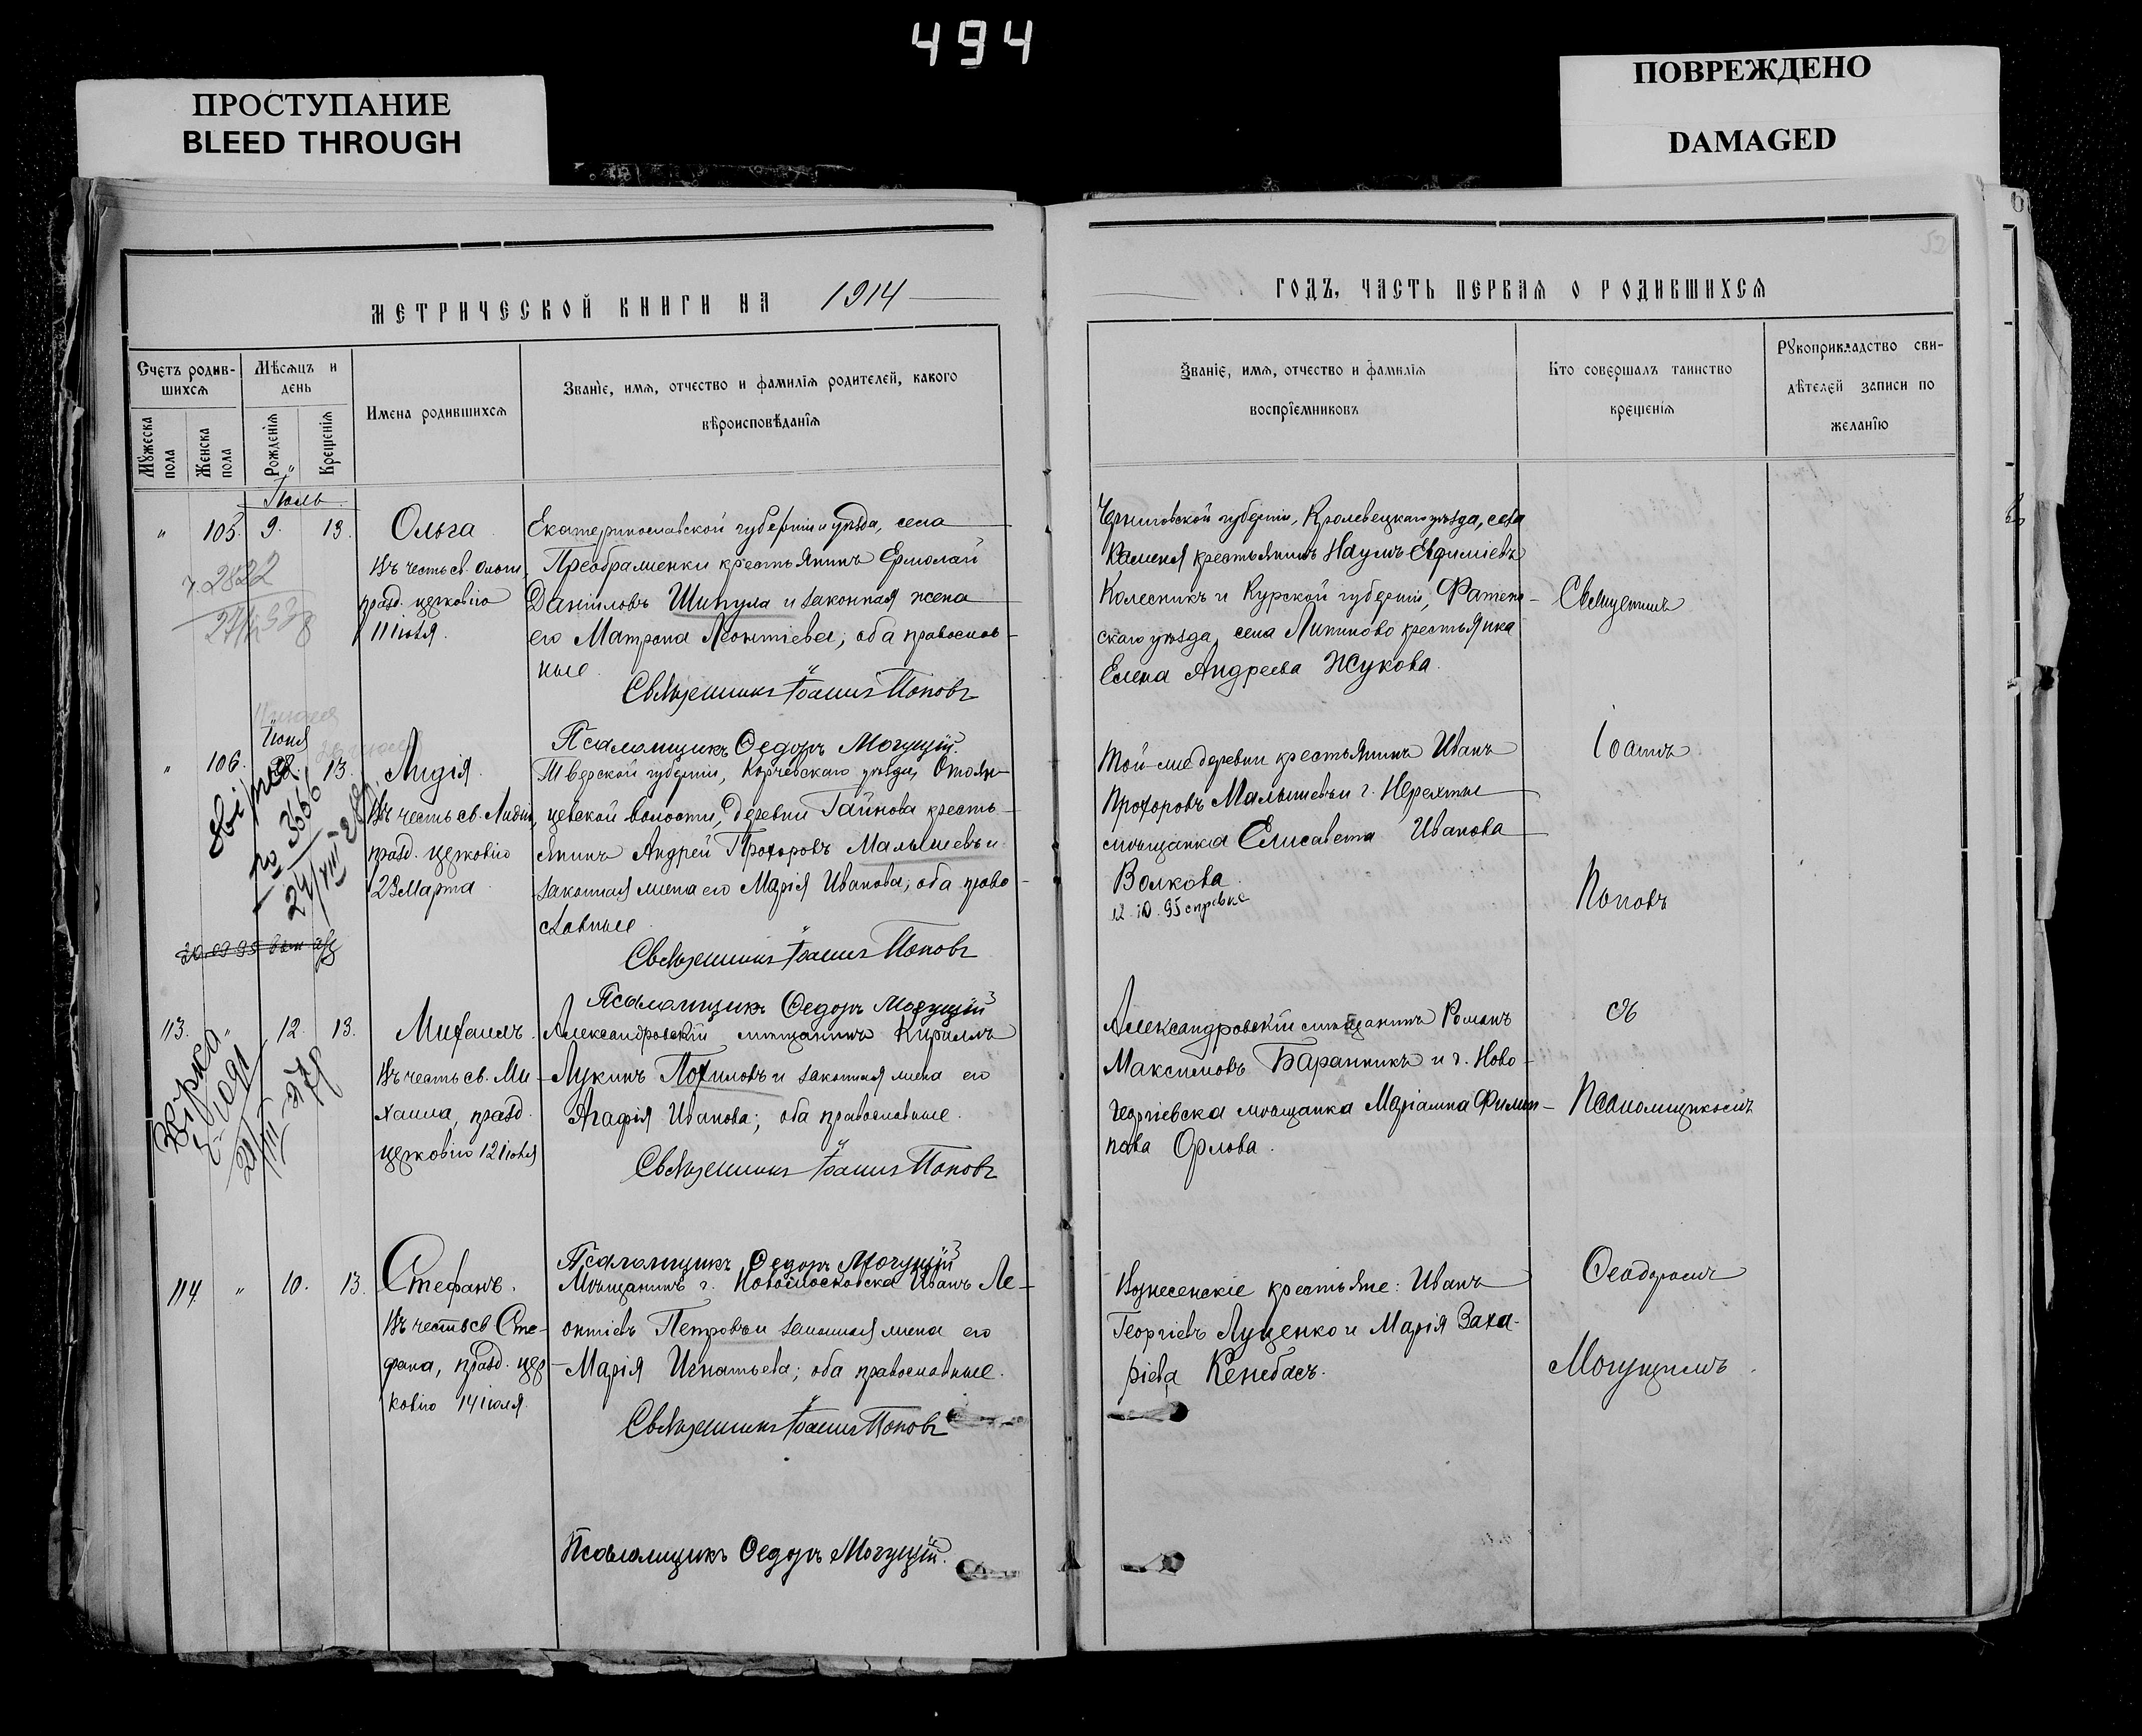 494
ПРОСТУПАНИЕ
BLEED THROUGH
ПОВРЕЖДЕНО
DAMAGED
МЕТРИЧЕСКОЙ КНИГИ НА 1914
Счетъ родив-
шихся
Мѣсяцъ и
день
Мужеска
пола
Женска
пола
Рожденія
Крещенія
Имена родившихся
Званіе, имя, отчество и фамилія родителей, какого
вѣроисповѣданія
Іюль
" 105. 9. 13.
Ольга
Въ честь св. Ольги,
празд. церковію
11 іюля.
Екатеринославской губерніи и уѣзда, села
Преображенки крестьянинъ Ермолай
Даніиловъ Шипула и законная жена
его Матрона Леонтіева; оба православ-
ные.
Священникъ Іоаннъ Поповъ
Псаломщикъ Ѳедоръ Могущій.
2822
Іюня
" 106. 13.
Лидія.
Въ честь св. Лидіи,
празд. церковію
23 Марта
Тверской губерніи, Корчевскаго уѣзда,
цевской волости, деревни Гайнова кресть-
янинъ Андрей Прохоровъ Малышевъ и
законная жена его Марія Иванова; оба право-
славные.
Священникъ Іоаннъ Поповъ
Псаломщикъ Ѳедоръ Могущій
№ 3666
24/VIII
113. " 12. 13.
Михаилъ.
Въ честь св. Ми-
хаила, празд.
церковію 12 іюля
Александровскій мѣщанинъ Кириллъ
Лукинъ Похиловъ и законная жена его
Агафія Иванова; оба православные.
Священникъ Іоаннъ Поповъ
Псаломщикъ Ѳедоръ Могущій
114. " 10. 13.
Стефанъ.
Въ честь св. Сте-
фана, празд. цер-
ковію 14 іюля.
Мѣщанинъ г. Новомосковска Иванъ Ле-
онтіевъ Петровъ и законная жена его
Марія Игнатьева; оба православные.
Священникъ Іоаннъ Поповъ
Псаломщикъ Ѳедоръ Могущій.
ГОДЪ, ЧАСТЬ ПЕРВАЯ О РОДИВШИХСЯ
Званіе, имя, отчество и фамилія
воспріемниковъ
Кто совершалъ таинство
крещенія
Рукоприкладство сви-
дѣтелей записи по
желанію
Черниговской губерніи, Кролевецкаго уѣзда, села
Каменя крестьянинъ Наумъ Евфиміевъ
Колесникъ и Курской губерніи, Фатеж-
скаго уѣзда, села Липиново крестьянка
Елена Андреева Жукова.
Той-же деревни крестьянинъ Иванъ
Прохоровъ Малышевъ и г. Нерехты
мѣщанка Елисавета Иванова
Волкова.
12.10.95 справка
Александровскій мѣщанинъ Романъ
Максимовъ Баранникъ и г. Ново-
георгіевска мѣщанка Маріамна Филип-
пова Орлова.
Вознесенскіе крестьяне: Иванъ
Георгіевъ Луценко и Марія Заха-
ріева Кенебасъ.
Священникъ
Іоаннъ
Поповъ
съ
Псаломщикомъ
Ѳеодоромъ
Могущимъ.